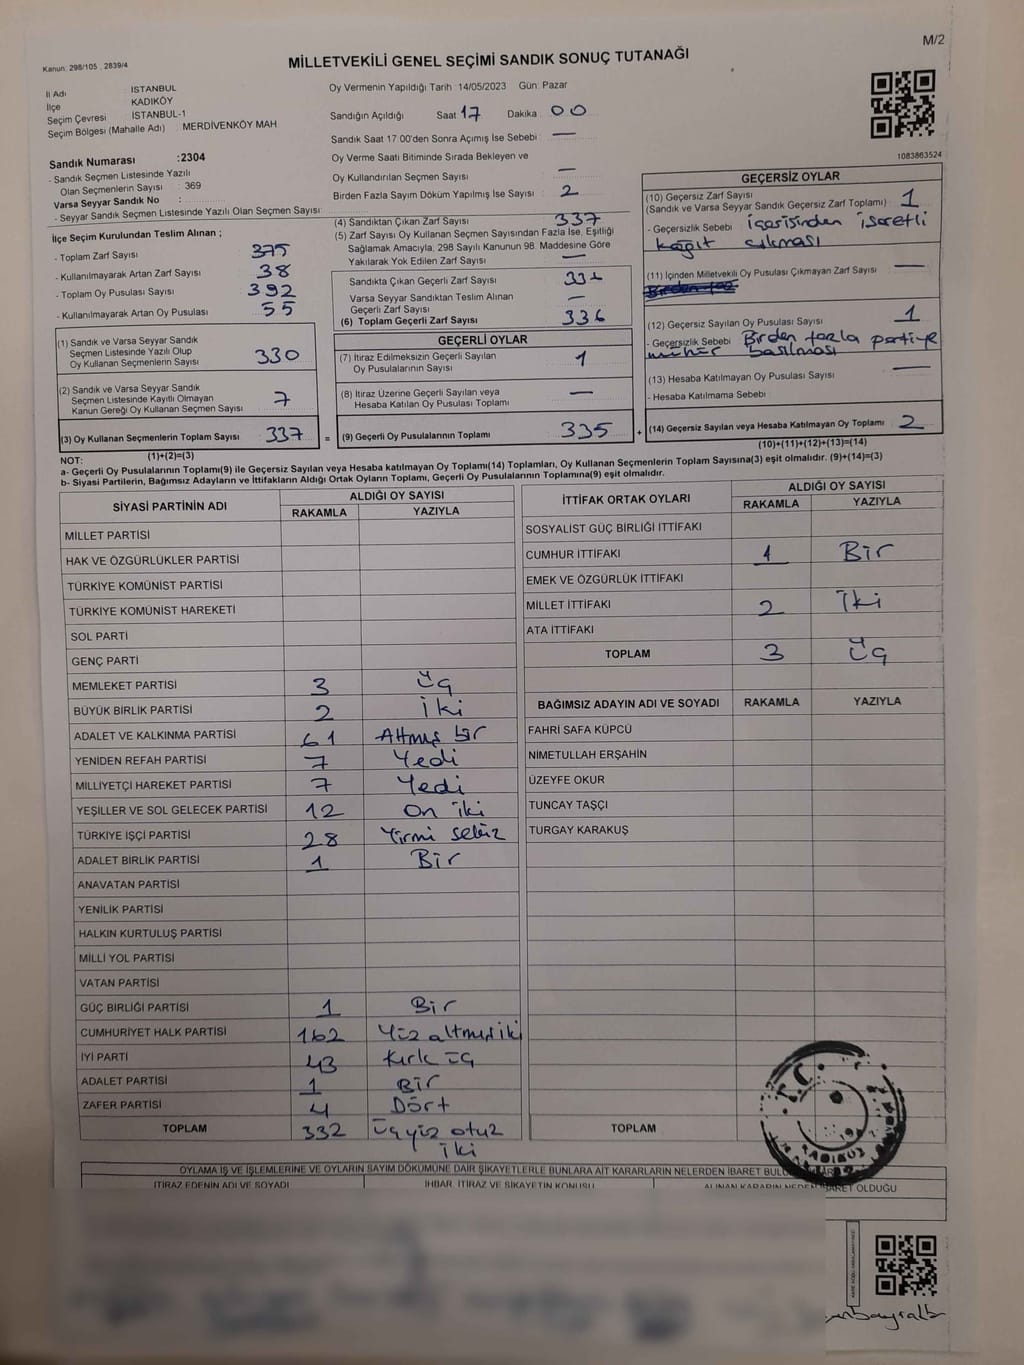 M/2
Kanun: 298/105 , 2839/4
MİLLETVEKİLİ GENEL SEÇİMİ SANDIK SONUÇ TUTANAĞI
İl Adı İSTANBUL
İlçe KADIKÖY
Seçim Çevresi İSTANBUL-1
Seçim Bölgesi (Mahalle Adı) : MERDİVENKÖY MAH
Sandık Numarası :2304
- Sandık Seçmen Listesinde Yazılı
Olan Seçmenlerin Sayısı : 369
Varsa Seyyar Sandık No :
- Seyyar Sandık Seçmen Listesinde Yazılı Olan Seçmen Sayısı:
Oy Vermenin Yapıldığı Tarih 14/05/2023 Gün: Pazar
Sandığın Açıldığı Saat: 17 Dakika 00
Sandık Saat 17 00'den Sonra Açımış İse Sebebi : —
Oy Verme Saati Bitiminde Sırada Bekleyen ve
Oy Kullandırılan Seçmen Sayısı —
Birden Fazla Sayım Döküm Yapılmış İse Sayısı : 2
1083863524
İlçe Seçim Kurulundan Teslim Alınan ;
- Toplam Zarf Sayısı 375
- Kullanılmayarak Artan Zarf Sayısı 38
- Toplam Oy Pusulası Sayısı 392
- Kullanılmayarak Artan Oy Pusulası 55
(1) Sandık ve Varsa Seyyar Sandık
Seçmen Listesinde Yazılı Olup
Oy Kullanan Seçmenlerin Sayısı 330
(2) Sandık ve Varsa Seyyar Sandık
Seçmen Listesinde Kayıtlı Olmayan
Kanun Gereği Oy Kullanan Seçmen Sayısı 7
(3) Oy Kullanan Seçmenlerin Toplam Sayısı 337
(1)+(2)=(3)
(4) Sandıktan Çıkan Zarf Sayısı 337
(5) Zarf Sayısı Oy Kullanan Seçmen Sayısından Fazla İse, Eşitliği
Sağlamak Amacıyla; 298 Sayılı Kanunun 98. Maddesine Göre
Yakılarak Yok Edilen Zarf Sayısı —
Sandıkta Çıkan Geçerli Zarf Sayısı
Varsa Seyyar Sandıktan Teslim Alınan
Geçerli Zarf Sayısı —
(6) Toplam Geçerli Zarf Sayısı 336
GEÇERLİ OYLAR
(7) İtiraz Edilmeksizin Geçerli Sayılan
Oy Pusulalarının Sayısı 1
(8) İtiraz Üzerine Geçerli Sayılan veya
Hesaba Katılan Oy Pusulası Toplamı —
= (9) Geçerli Oy Pusulalarının Toplamı 335
GEÇERSİZ OYLAR
(10) Geçersiz Zarf Sayısı 1
(Sandık ve Varsa Seyyar Sandık Geçersiz Zarf Toplamı)
- Geçersizlik Sebebi : içerisinden işaretli
kağıt çıkması
(11) İçinden Milletvekili Oy Pusulası Çıkmayan Zarf Sayısı —
(12) Geçersiz Sayılan Oy Pusulası Sayısı 1
- Geçersizlik Sebebi Birden fazla partiye
mühür basılması
(13) Hesaba Katılmayan Oy Pusulası Sayısı —
- Hesaba Katılmama Sebebi
+ (14) Geçersiz Sayılan veya Hesaba Katılmayan Oy Toplamı 2
(10)+(11)+(12)+(13)=(14)
NOT:
a- Geçerli Oy Pusulalarının Toplamı(9) ile Geçersiz Sayılan veya Hesaba katılmayan Oy Toplamı(14) Toplamları, Oy Kullanan Seçmenlerin Toplam Sayısına(3) eşit olmalıdır. (9)+(14)=(3)
b- Siyasi Partilerin, Bağımsız Adayların ve İttifakların Aldığı Ortak Oyların Toplamı, Geçerli Oy Pusulalarının Toplamına(9) eşit olmalıdır.
SİYASİ PARTİNİN ADI ALDIĞI OY SAYISI
RAKAMLA YAZIYLA
MİLLET PARTİSİ
HAK VE ÖZGÜRLÜKLER PARTİSİ
TÜRKİYE KOMÜNİST PARTİSİ
TÜRKİYE KOMÜNİST HAREKETİ
SOL PARTİ
GENÇ PARTİ
MEMLEKET PARTİSİ 3 Üç
BÜYÜK BİRLİK PARTİSİ 2 İki
ADALET VE KALKINMA PARTİSİ 61 Altmış bir
YENİDEN REFAH PARTİSİ 7 Yedi
MİLLİYETÇİ HAREKET PARTİSİ 7 Yedi
YEŞİLLER VE SOL GELECEK PARTİSİ 12 On iki
TÜRKİYE İŞÇİ PARTİSİ 28 Yirmi sekiz
ADALET BİRLİK PARTİSİ 1 Bir
ANAVATAN PARTİSİ
YENİLİK PARTİSİ
HALKIN KURTULUŞ PARTİSİ
MİLLİ YOL PARTİSİ
VATAN PARTİSİ
GÜÇ BİRLİĞİ PARTİSİ 1 Bir
CUMHURİYET HALK PARTİSİ 162 Yüz altmış iki
İYİ PARTİ 43 Kırk üç
ADALET PARTİSİ 1 Bir
ZAFER PARTİSİ 4 Dört
TOPLAM 332 Üçyüz otuz
iki
İTTİFAK ORTAK OYLARI ALDIĞI OY SAYISI
RAKAMLA YAZIYLA
SOSYALİST GÜÇ BİRLİĞİ İTTİFAKI
CUMHUR İTTİFAKI 1 Bir
EMEK VE ÖZGÜRLÜK İTTİFAKI
MİLLET İTTİFAKI 2 İki
ATA İTTİFAKI
TOPLAM 3 Üç
BAĞIMSIZ ADAYIN ADI VE SOYADI RAKAMLA YAZIYLA
FAHRİ SAFA KÜPCÜ
NİMETULLAH ERŞAHİN
ÜZEYFE OKUR
TUNCAY TAŞÇI
TURGAY KARAKUŞ
TOPLAM
T.C.
KADIKÖY
OYLAMA İŞ VE İŞLEMLERİNE VE OYLARIN SAYIM DÖKÜMÜNE DAİR ŞİKAYETLERLE BUNLARA AİT KARARLARIN NELERDEN İBARET
İTİRAZ EDENİN ADI VE SOYADI İHBAR, İTİRAZ VE ŞİKAYETİN KONUSU ALINAN KARARIN OLDUĞU